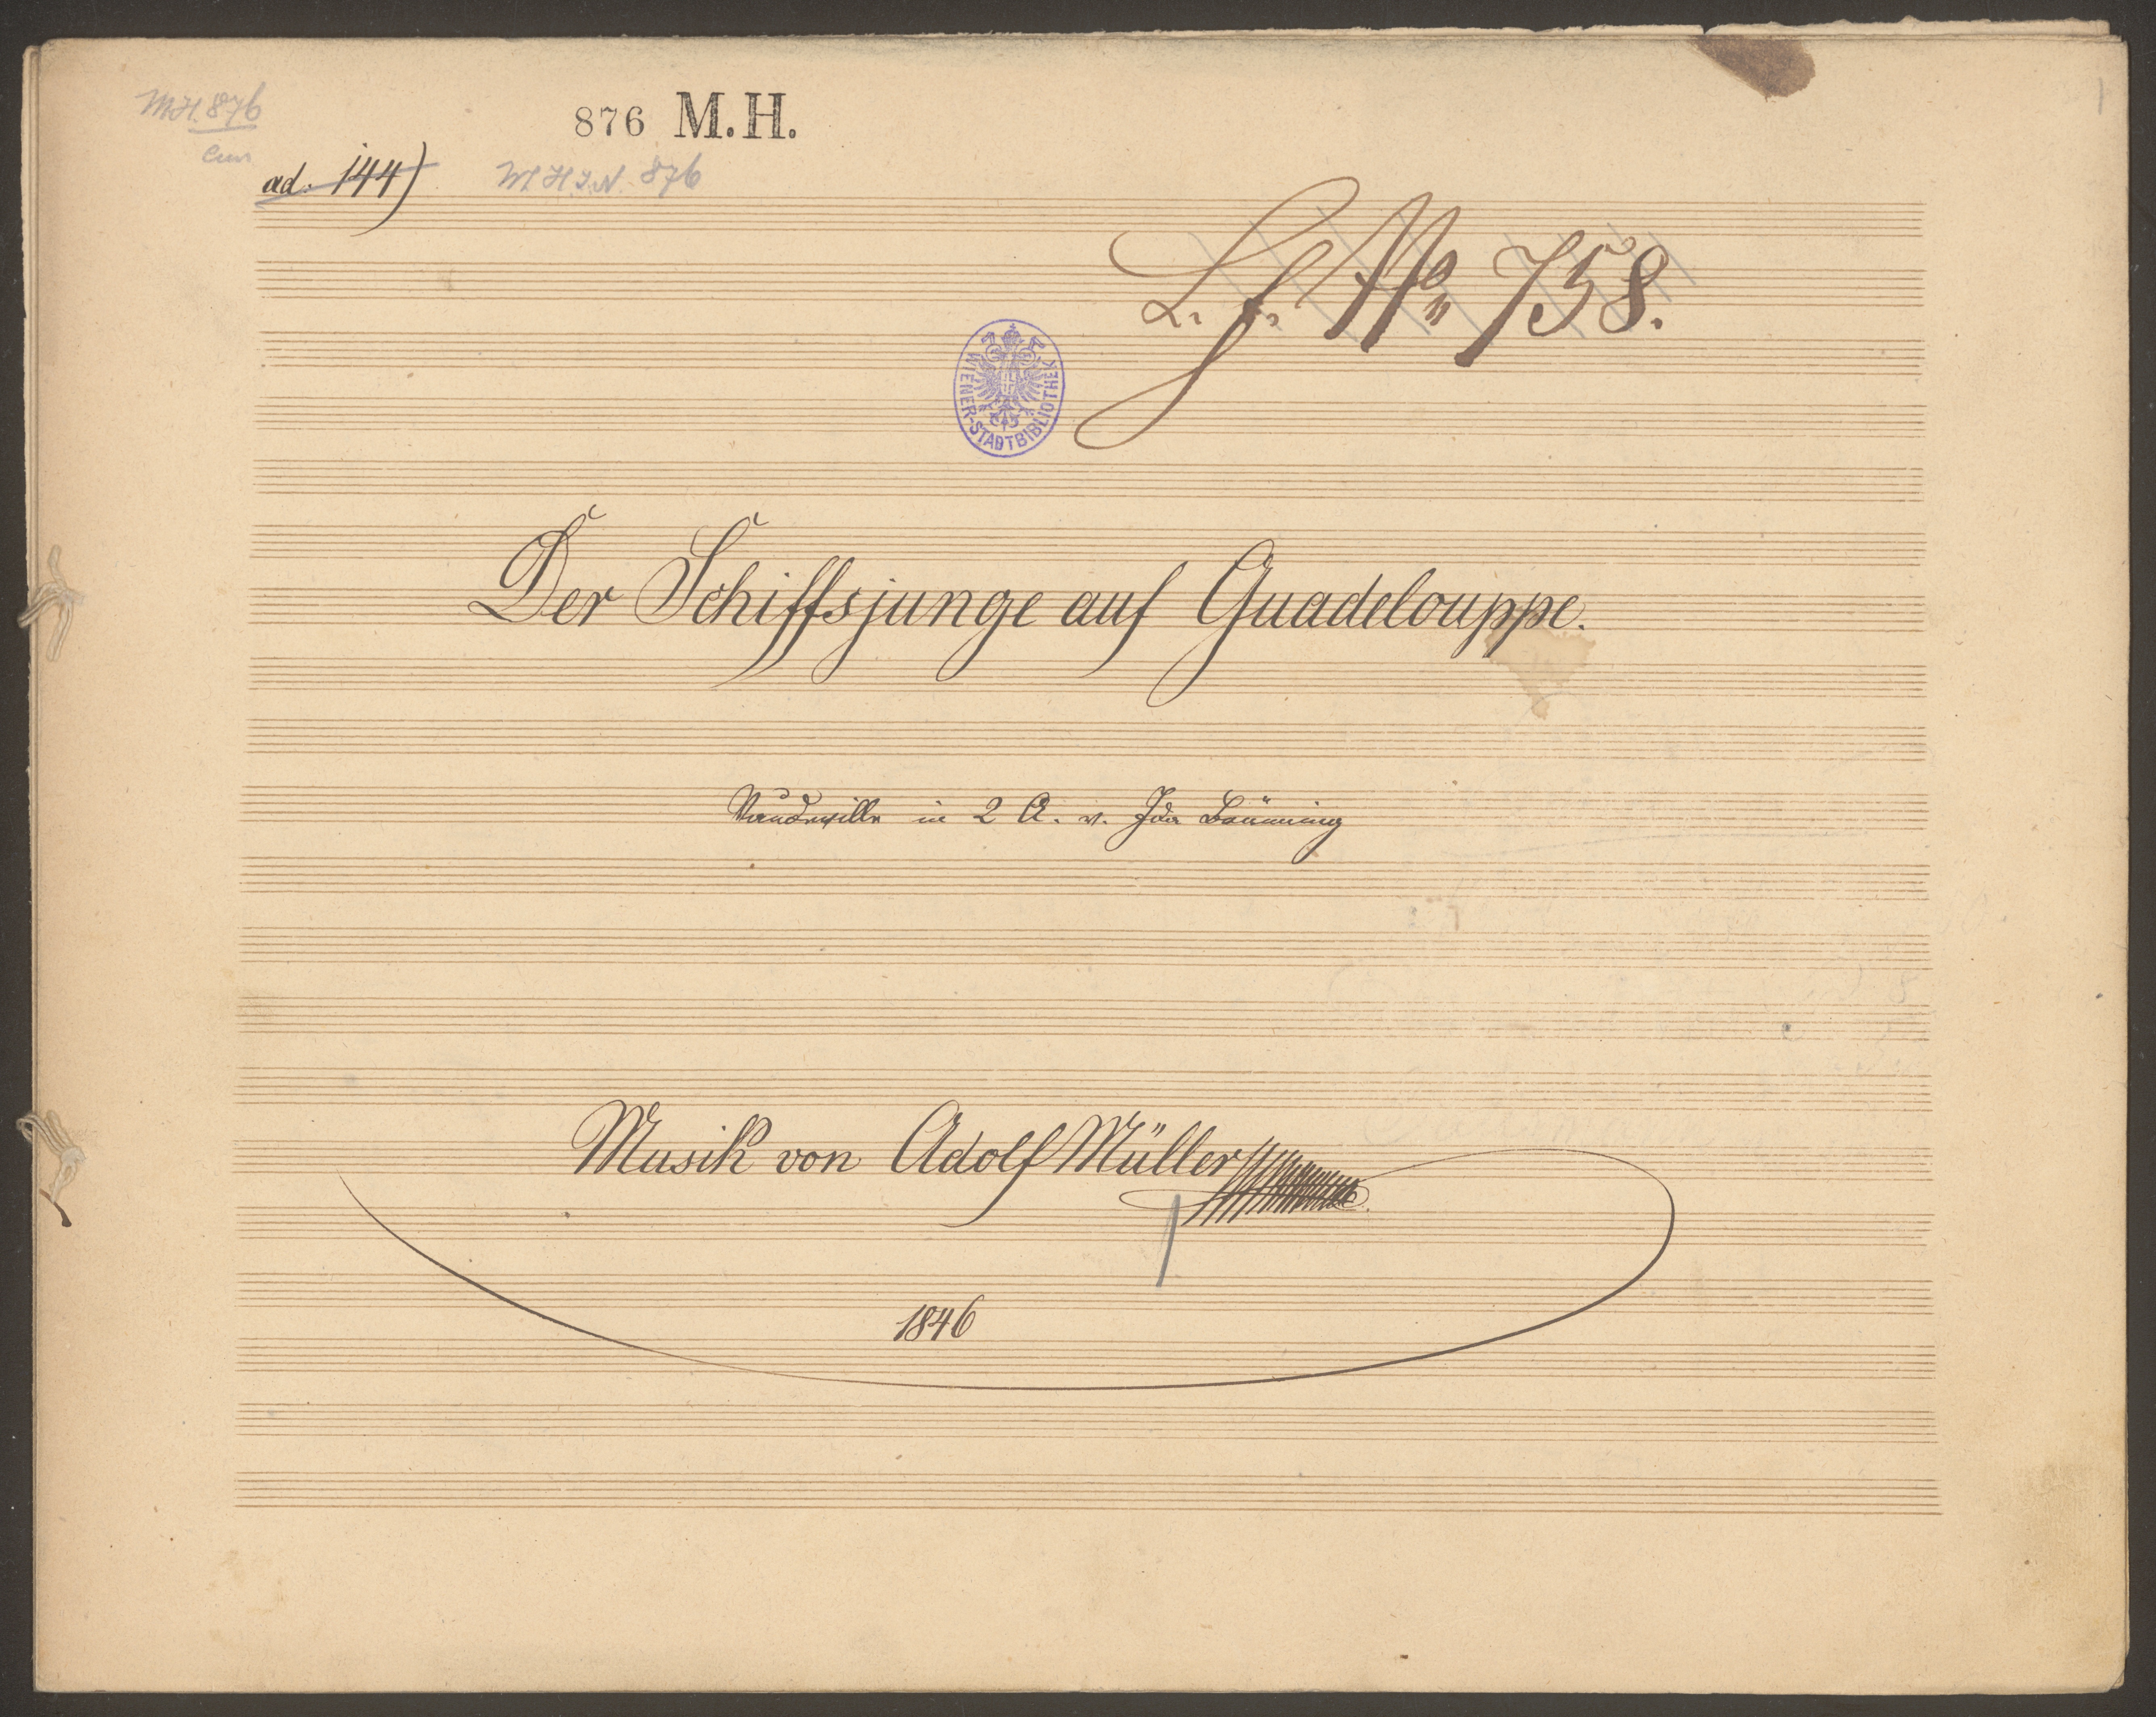 MH. 876
876 M.H.
ad. 144)
M H. I. N. 876
L. f. No 758.
WIENER-STADTBIBLIOTHEK
Der Schiffsjunge auf Guadelouppe.
Vaudeville in 2 A. v. Ida Brünning
Musik von Adolf Müller
1846